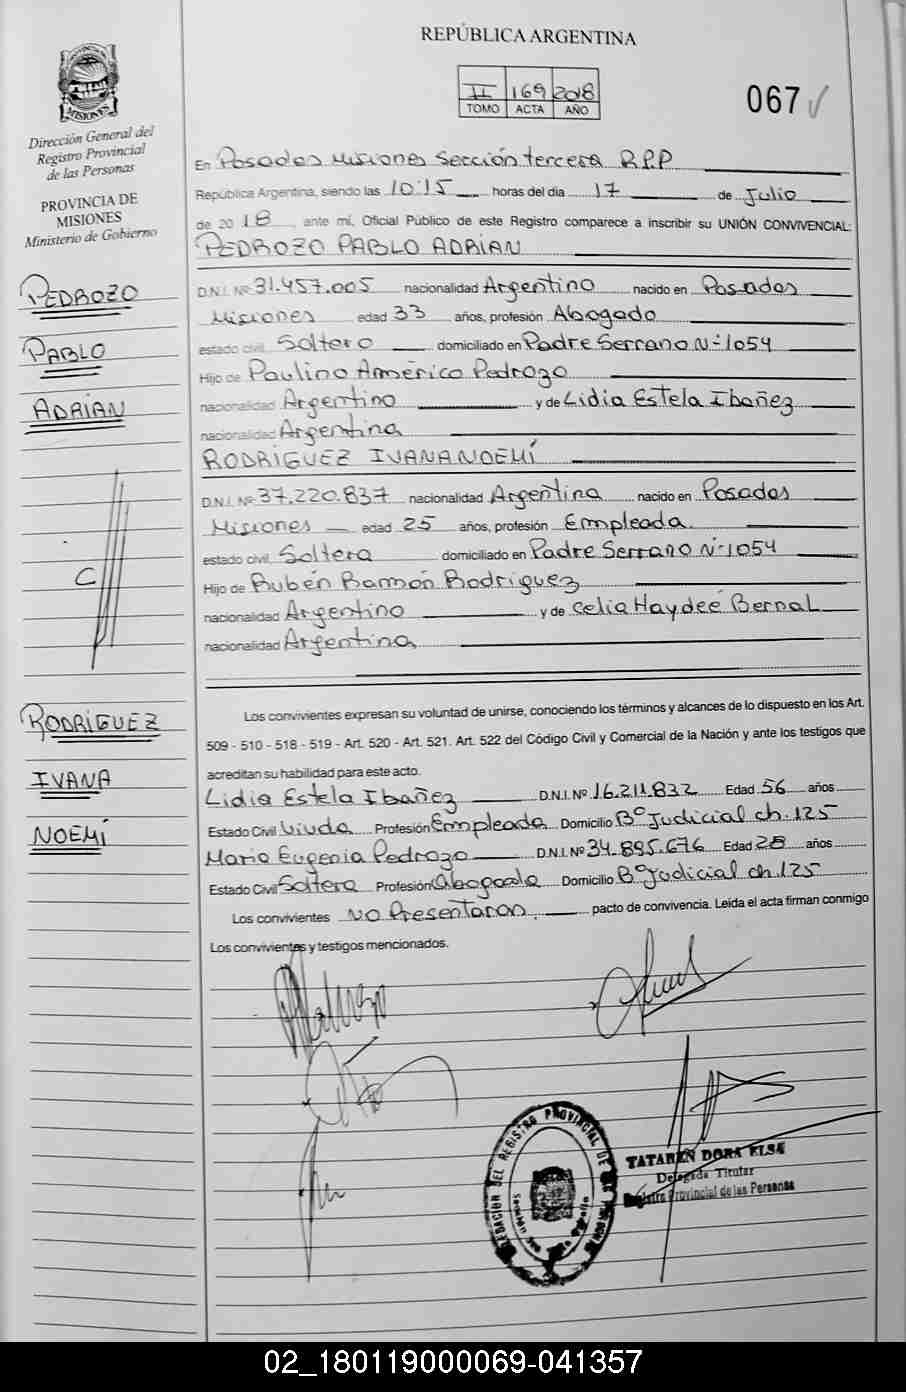 REPÚBLICA ARGENTINA
II 169 2018
TOMO ACTA AÑO
067
PROVINCIA DE
MISIONES
Dirección General del
Registro Provincial
de las Personas
PROVINCIA DE
MISIONES
Ministerio de Gobierno
PEDROZO
PABLO
ADRIAN
C
RODRÍGUEZ
IVANA
NOEMÍ
En Posadas Misiones Sección tercera R.P.P
República Argentina, siendo las 10:15 horas del día 17 de Julio
de 2018, ante mí, Oficial Público de este Registro comparece a inscribir su UNIÓN CONVIVENCIAL:
PEDROZO PABLO ADRIAN
D.N.I. Nº 31.457.005 nacionalidad Argentino nacido en Posadas
Misiones edad 33 años, profesión Abogado
estado civil Soltero domiciliado en Padre Serrano Nº 1054
Hijo de Paulino Américo Pedrozo
nacionalidad Argentino y de Lidia Estela Ibañez
nacionalidad Argentina
RODRÍGUEZ IVANA NOEMÍ
D.N.I. Nº 37.220.837 nacionalidad Argentina nacido en Posadas
Misiones edad 25 años, profesión Empleada
estado civil Soltera domiciliado en Padre Serrano Nº 1054
Hijo de Rubén Ramón Rodríguez
nacionalidad Argentino y de Celia Haydeé Bernal
nacionalidad Argentina
Los convivientes expresan su voluntad de unirse, conociendo los términos y alcances de lo dispuesto en los Art.
509 - 510 - 518 - 519 - Art. 520 - Art. 521. Art. 522 del Código Civil y Comercial de la Nación y ante los testigos que
acreditan su habilidad para este acto.
Lidia Estela Ibañez D.N.I. Nº 16.211.832 Edad 56 años
Estado Civil Viuda Profesión Empleada Domicilio Bº Judicial ch. 125
Maria Eugenia Pedrozo D.N.I. Nº 34.895.676 Edad 28 años
Estado Civil Soltera Profesión Abogada Domicilio Bº Judicial ch. 125
Los convivientes No Presentaron, pacto de convivencia. Leída el acta firman conmigo
Los convivientes y testigos mencionados.
DELEGACION DEL REGISTRO PROVINCIAL DE LAS PERSONAS
TATAREN DORA ELSA
Delegada Titular
Registro Provincial de las Personas
02_180119000069-041357